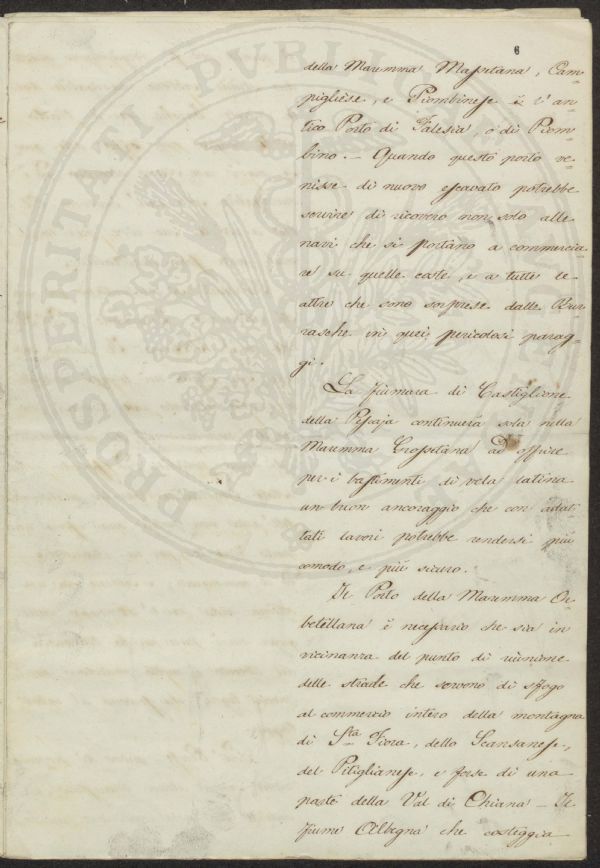 6
della Maremma Massetana, Cam=
pigliese, e Piombinese è l'an=
tico Porto di Falesia, o di Piom=
bino. — Quando questo porto ve=
nisse di nuovo escavato potrebbe
servire di ricovero non solo alle
navi che si portano a commercia=
re su quelle coste, e a tutte le
altre che sono sorprese dalle Bur=
rasche in quei pericolosi parag=
gi.
La fiumara di Castiglione
della Pescaja continuerà sola nella
Maremma Grossetana ad offrire
per i bastimenti di vela latina
un buon ancoraggio che con adat
tati lavori potrebbe rendersi più
comodo, e più sicuro.
Il Porto della Maremma Or=
betellana è necessario che sia in
vicinanza del punto di riunione
delle strade che servono di sfogo
al commercio intero della montagna
di Sta Fiora, dello Scansanese,
del Pitiglianese, e forse di una
parte della Val di Chiana — Il
fiume Albegna che costeggia
PROSPERITATI PVBLICAE